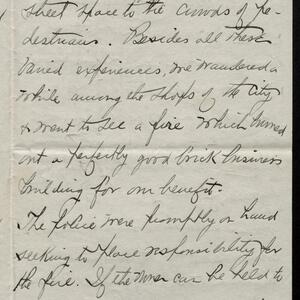 street space to the crowds of pe-
destrians. Besides all these
varied experiences, we wandered a
while among the shops of the City
& went to see a fire which burned
out a perfectly good brick business
building for our benefit.
The police were promptly on hand
seeking to place responsibility for
the fire. If the owner can be held to